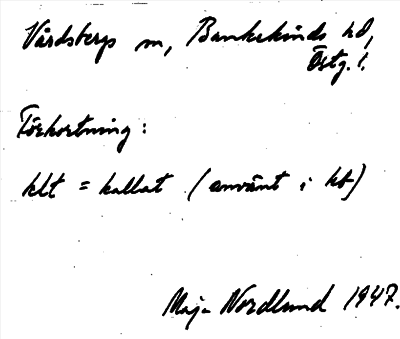 Vårdsbergs sn, Bankekinds hd,
Östg. l.
Förkortning:
klt = kallat (använt i kb)
Maja Nordlund 1947.